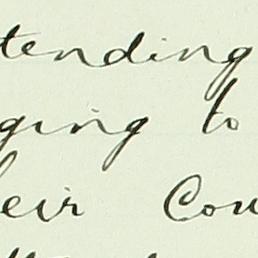 tending
ging to
eir Cou